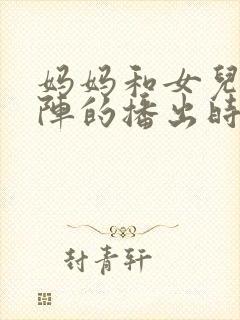 妈妈和女兒
陣的播出時
封青轩